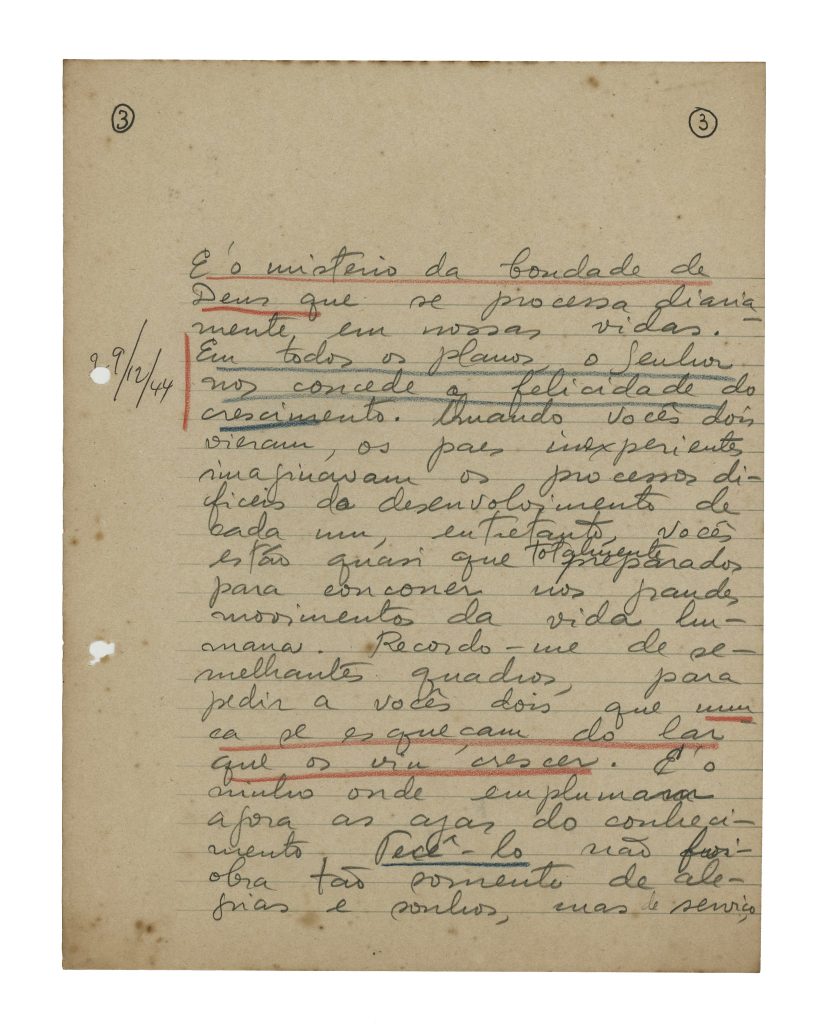 3 3
E' o mistério da bondade de
Deus que se processa diaria
mente, em nossas vidas. —
9/12/44
Em todos os planos, o Senhor
nos concede a felicidade do
crescimento. Quando vocês dois
vieram, os paes inexperientes
imaginavam os processos di-
ficeis do desenvolvimento de
cada um, entretanto, vocês
estão quasi que totalmente preparados
para concorrer nos grandes
movimentos da vida hu-
mana. Recordo-me de se-
melhantes quadros, para
pedir a vocês dois que nun
ca se esqueçam do lar
que os viu crescer. E' o
ninho onde emplumam
agora as azas do conheci-
mento. Tecê-lo não foi
obra tão somente de ale-
grias e sonhos, mas de serviço